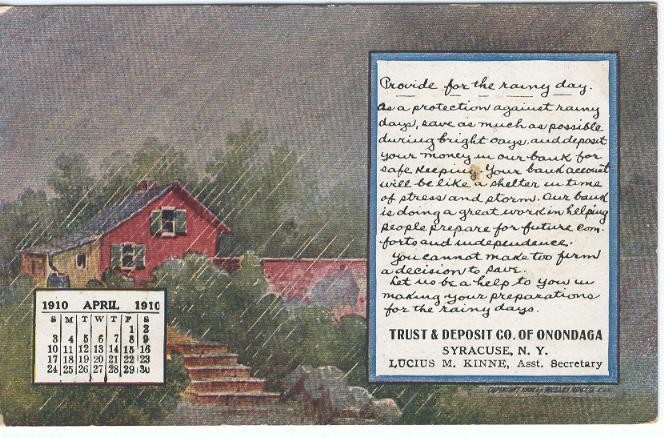 Provide for the rainy day.
As a protection against rainy
days, save as much as possible
during bright days, and deposit
your money in our bank for
safe keeping. Your bank account
will be like a shelter in time
of stress and storm. Our bank
is doing a great work in helping
people prepare for future com-
forts and independence.
You cannot make too firm
a decision to save.
Let us be a help to you in
making your preparations
for the rainy days.
TRUST & DEPOSIT CO. OF ONONDAGA
SYRACUSE, N. Y.
LUCIUS M. KINNE, Asst. Secretary
1910 APRIL 1910
S M T W T F S
1 2
3 4 5 6 7 8 9
10 11 12 13 14 15 16
17 18 19 20 21 22 23
24 25 26 27 28 29 30
COPYRIGHT